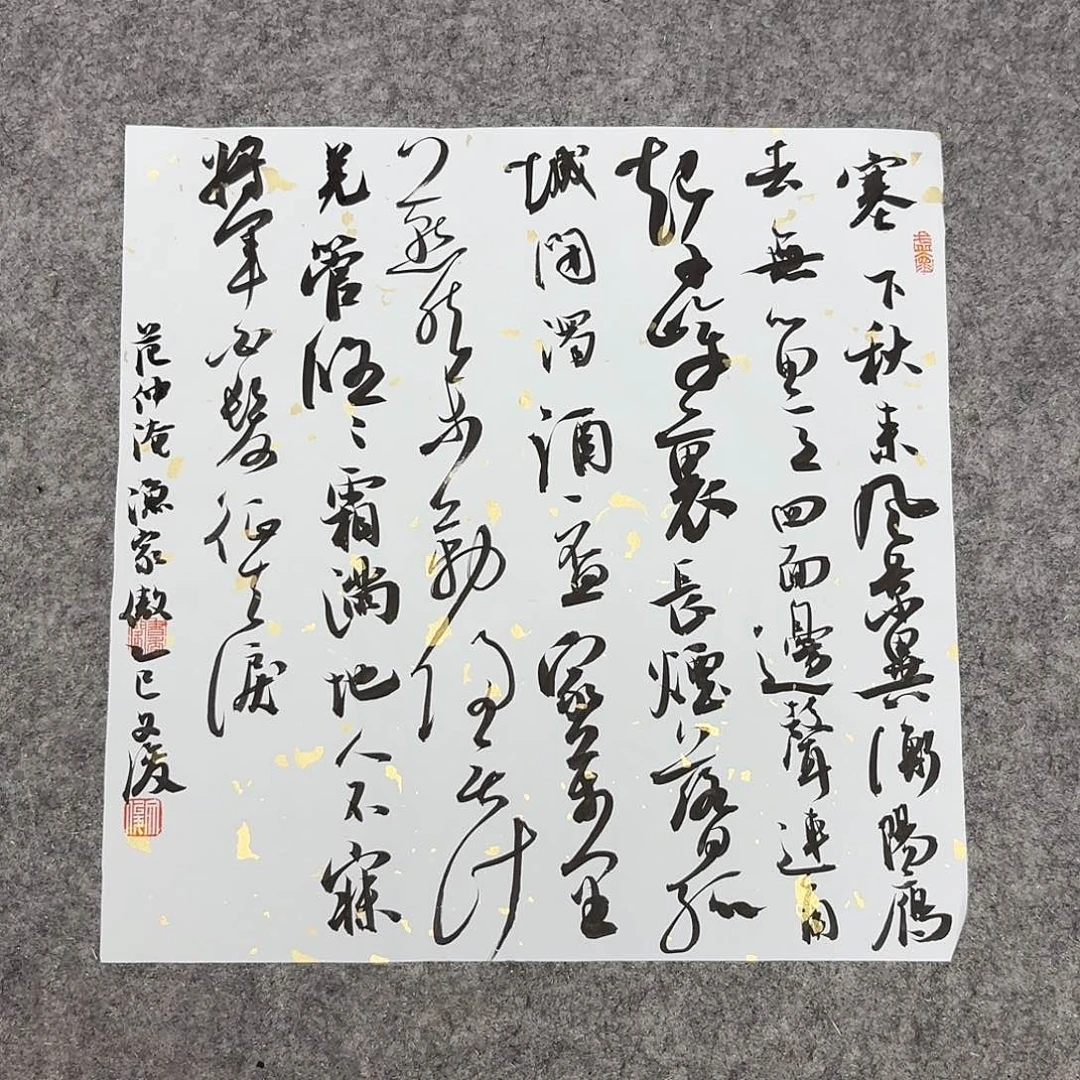 塞下秋来风景異衡陽雁
去無留意四面邊聲連角
起千嶂裏長煙落日孤
城闭濁酒一盃家萬里
燕然未勒歸無計
羌管悠〻霜滿地人不寐
將軍白髮征夫淚
范仲淹漁家傲乙巳